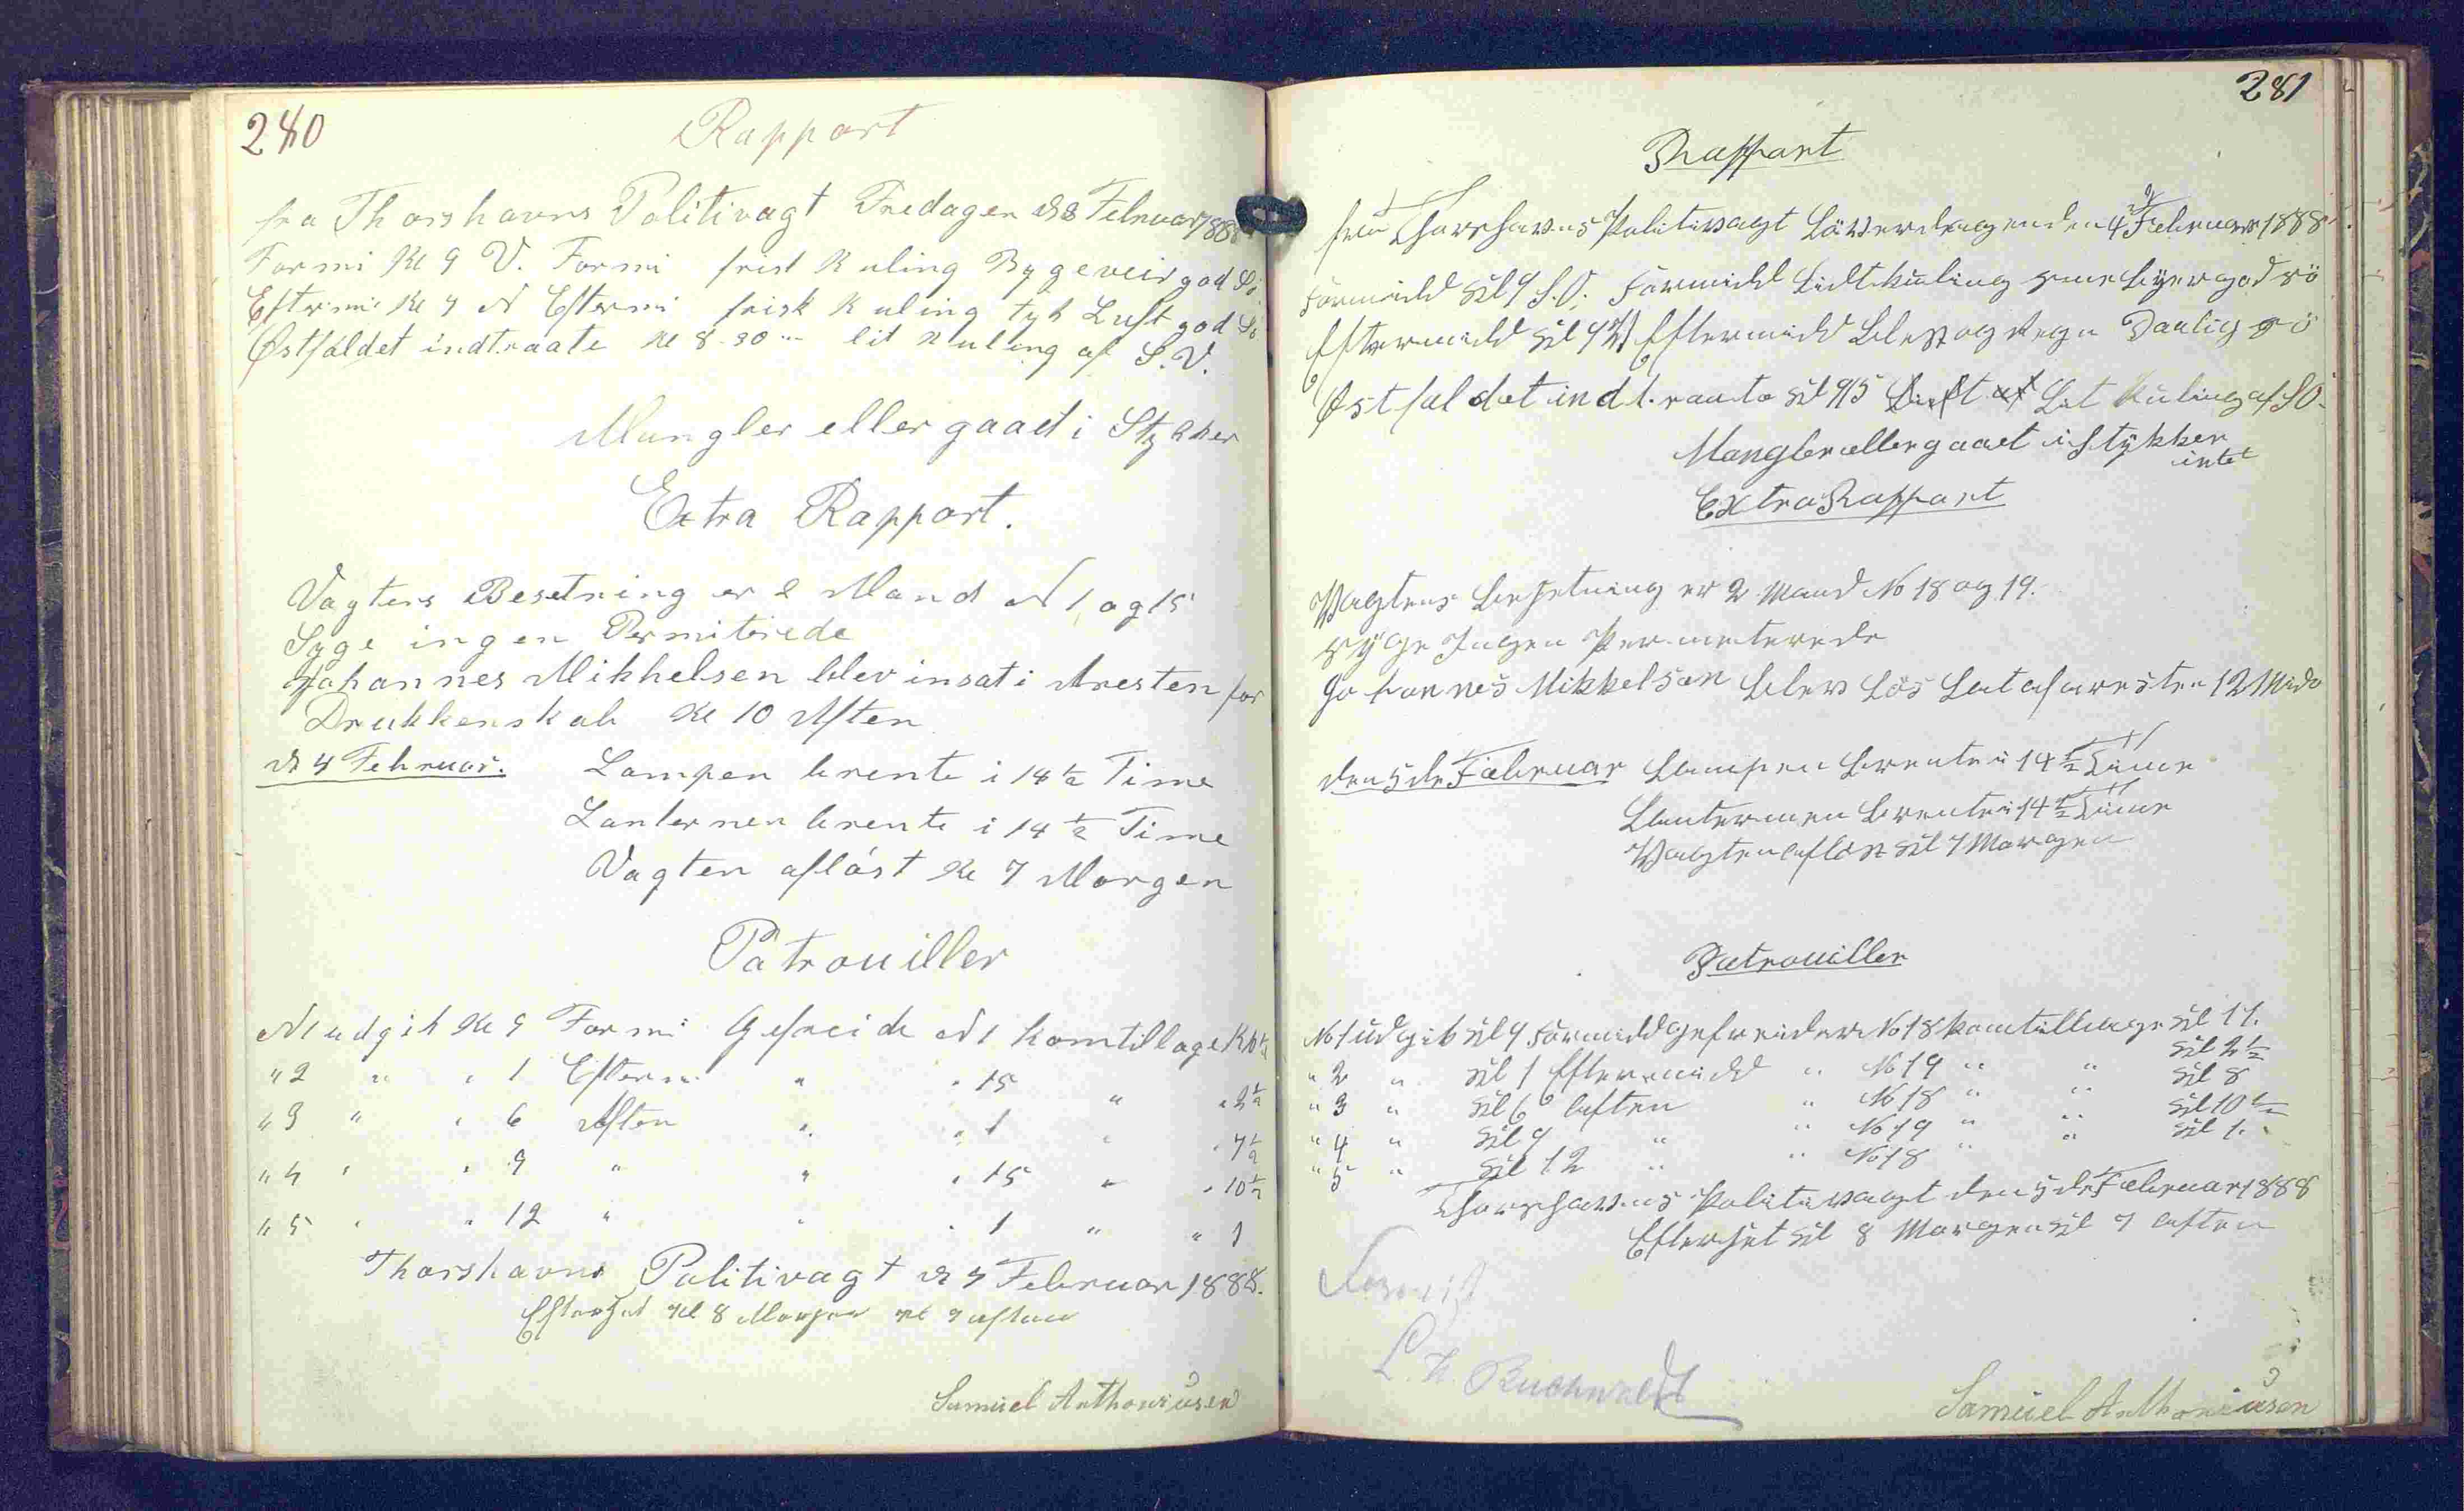 280
Rapport
fra Thorshavns Politivagt Fredagen d 3 Februar 1888
Formi Kl 9 V. Formi frisk Kuling Bygeveir god Sö
Eftermi Kl 4 N Eftermi frisk Kuling tyk Luft god Sö
Østfaldet indtraate Kl 8-30 m lit Kuling af S.V.
Mangler eller gaaet i Stykker
Extra Rapport.
Vagtens Besetning er 2 Mand N 1 og 15
Syge ingen Permiterede
Johannes Mikkelsen blev insat i Aresten for
Drukkenskab Kl 10 Aften
d 4 Februar. Lampen brente i 14 1/2 Time
Lanternen brente i 14 1/2 Time
Vagten afløst Kl 7 Morgen
Patrouiller
N 1 udgik Kl 9 Formi Gefreide N 1 kom tilbage Kl
" 2 " " 1 Efterm " " 15 " " 2 1/2
" 3 " " 6 Aften " " 1 " " 7 1/2
" 4 " " 9 " " " 15 " " 10 1/2
" 5 " " 12 " " " 1 " " 1
Thorshavns Politivagt d 4 Februar 1888.
Efterset Kl 8 Morgen Kl 7 aften
Samuel Anthoniusen
281
Rapport
fra Thorshavns Politivagt Löverdagen den 4de Februar 1888
Formidd Kl 9 S.O. Formidd Lidt Kuling god sö
Eftermidd Kl 4 Eftermidd blest og Regn Daalig sö
Østfaldet indtraate Kl 915 Lit Kuling af SO.
Mangler eller gaaet i Stykker
intet
Extra Rapport
Vagtens besetning er 2 Mand No 18 og 19.
syge Ingen Permeterede
Johannes Mikkelsen blev lös lat af aresten 12 Midd
den 5de Februar Lampen brente i 14 1/2 Time
Lanternen brente i 14 1/2 Time
Vagten aflöst Kl 7 Morgen
Patrouiller
No 1 udgik Kl 9 Formidd gefreider No 18 kom tilbage Kl 11.
" 2 " Kl 1 Eftermidd " No 19 " " Kl 2 1/2
" 3 " Kl 6 aften " No 18 " " Kl 8
" 4 " Kl 9 " " No 19 " " Kl 10 1/2
" 5 " Kl 12 " " No 18 " " Kl 1.
Thorshavns Politivagt den 5de Februar 1888
Efterset Kl 8 Morgen Kl 7 aften
L. H. Buchwaldt
Samuel Anthoniusen